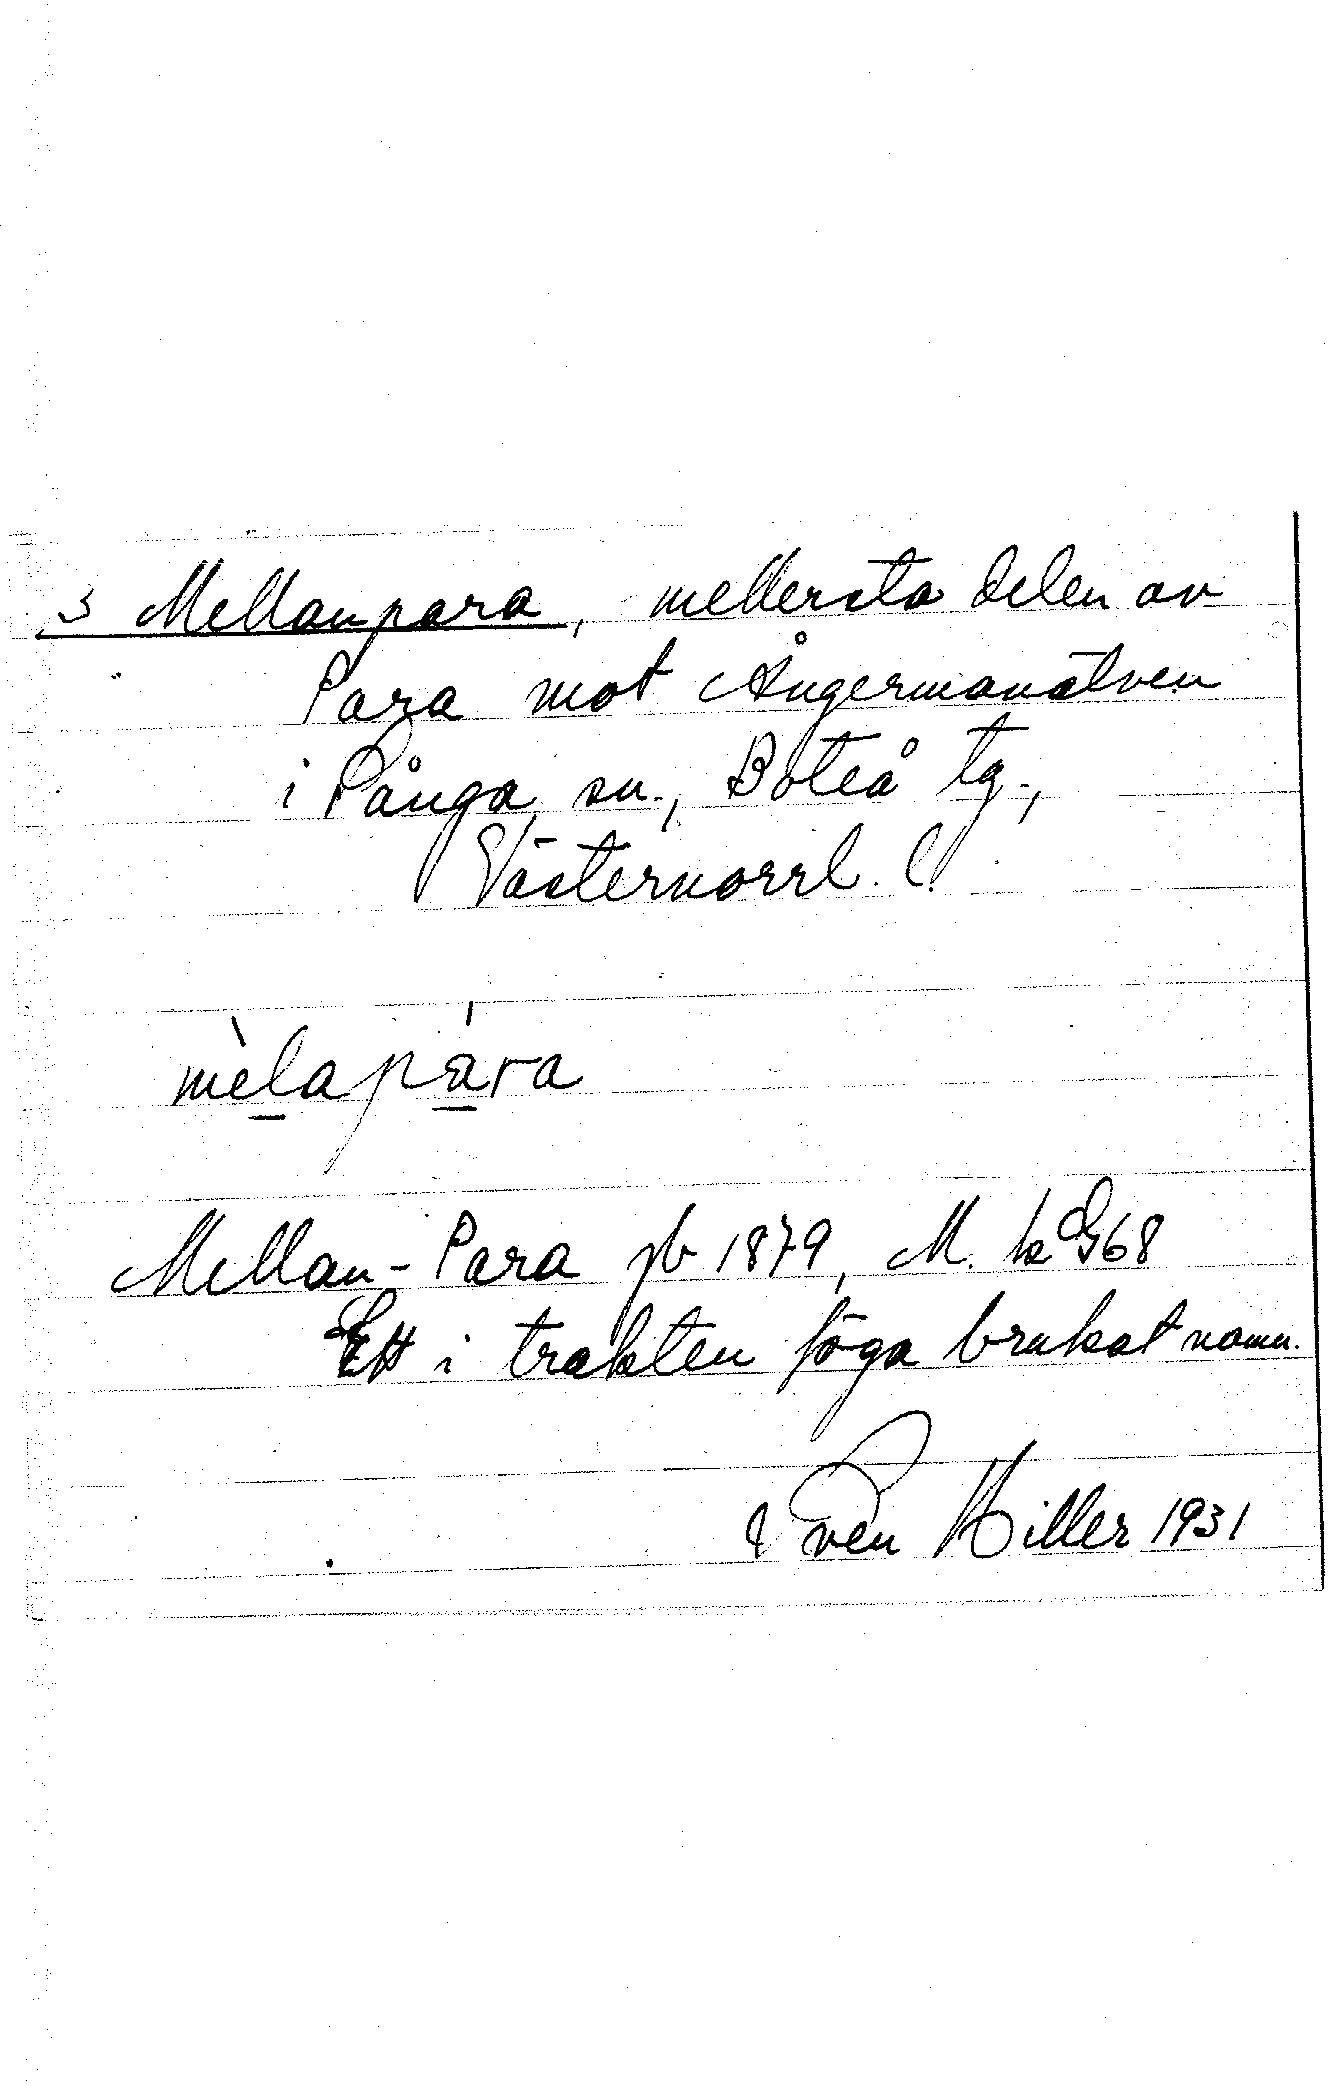 3 Mellanpara, mellersta delen av
Para mot Ångermanälven
i Långa sn., Boteå tg.,
Västernorrl. l.
mèlapára
Mellan-Para jb 1879, M. k G68
Ett i trakten föga brukat namn.
Sven Hiller 1931